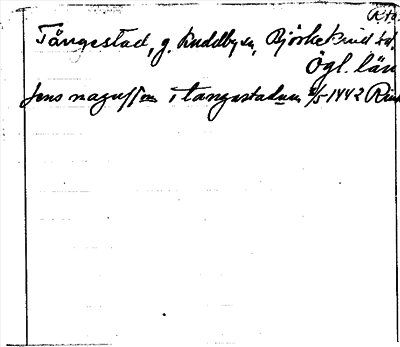 Tångestad, g. Kuddby sn, Björkekind hd.
Ögl. län
Jens naguffen i tangastadum 2/5 1442 Rinn